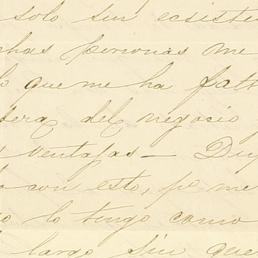 solo sin
personas me
lo que me ha falt
del negocio
ventajas — Dig
con esto, pr me
lo tengo como
largo sin que